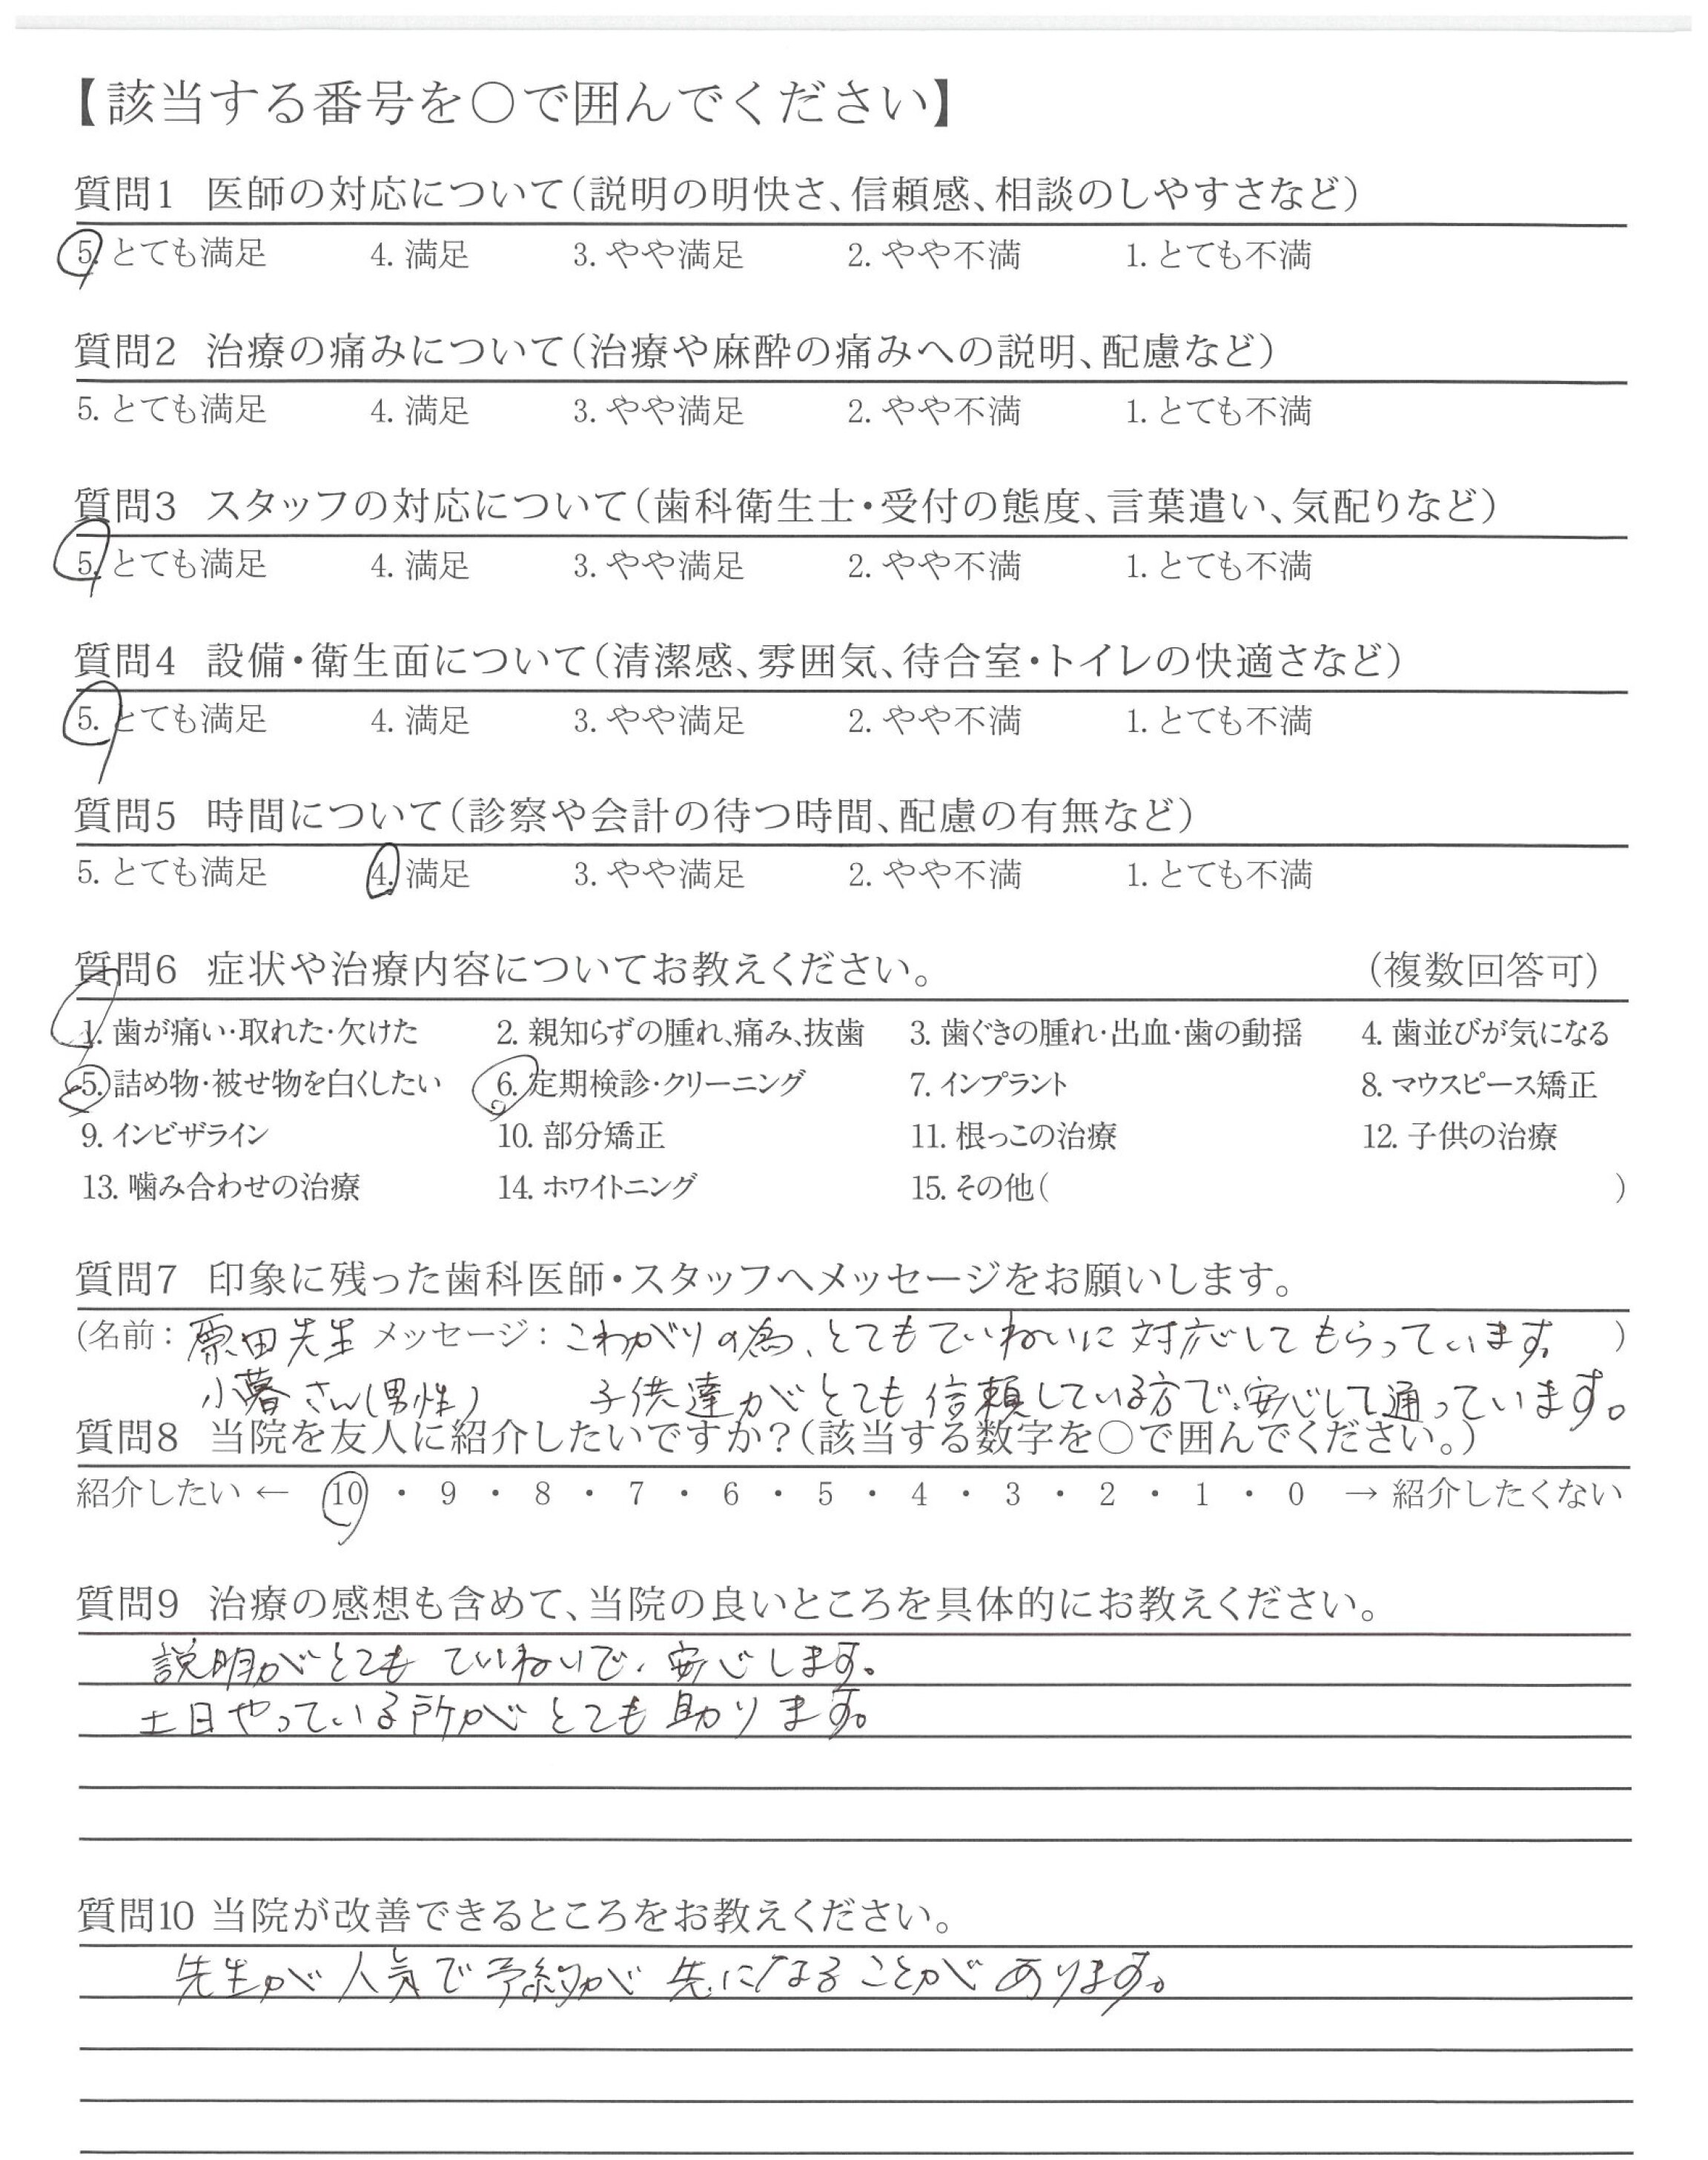 【該当する番号を〇で囲んでください】
質問1 医師の対応について(説明の明快さ、信頼感、相談のしやすさなど)
5. とても満足 4. 満足 3. やや満足 2. やや不満 1. とても不満
質問2 治療の痛みについて(治療や麻酔の痛みへの説明、配慮など)
5. とても満足 4. 満足 3. やや満足 2. やや不満 1. とても不満
質問3 スタッフの対応について(歯科衛生士・受付の態度、言葉遣い、気配りなど)
5. とても満足 4. 満足 3. やや満足 2. やや不満 1. とても不満
質問4 設備・衛生面について(清潔感、雰囲気、待合室・トイレの快適さなど)
5. とても満足 4. 満足 3. やや満足 2. やや不満 1. とても不満
質問5 時間について(診察や会計の待つ時間、配慮の有無など)
5. とても満足 4. 満足 3. やや満足 2. やや不満 1. とても不満
質問6 症状や治療内容についてお教えください。 (複数回答可)
1. 歯が痛い・取れた・欠けた 2. 親知らずの腫れ、痛み、抜歯 3. 歯ぐきの腫れ・出血・歯の動揺 4. 歯並びが気になる
5. 詰め物・被せ物を白くしたい 6. 定期検診・クリーニング 7. インプラント 8. マウスピース矯正
9. インビザライン 10. 部分矯正 11. 根っこの治療 12. 子供の治療
13. 噛み合わせの治療 14. ホワイトニング 15. その他( )
質問7 印象に残った歯科医師・スタッフへメッセージをお願いします。
(名前: 原田先生 メッセージ: こわがりの為、とてもていねいに対応してもらっています。 )
小暮さん(男性) 子供達がとても信頼している方で、安心して通っています。
質問8 当院を友人に紹介したいですか?(該当する数字を〇で囲んでください。)
紹介したい ← 10 ・ 9 ・ 8 ・ 7 ・ 6 ・ 5 ・ 4 ・ 3 ・ 2 ・ 1 ・ 0 → 紹介したくない
質問9 治療の感想も含めて、当院の良いところを具体的にお教えください。
説明がとてもていねいで、安心します。
土日やっている所がとても助ります。
質問10 当院が改善できるところをお教えください。
先生が人気で予約が先になることがあります。